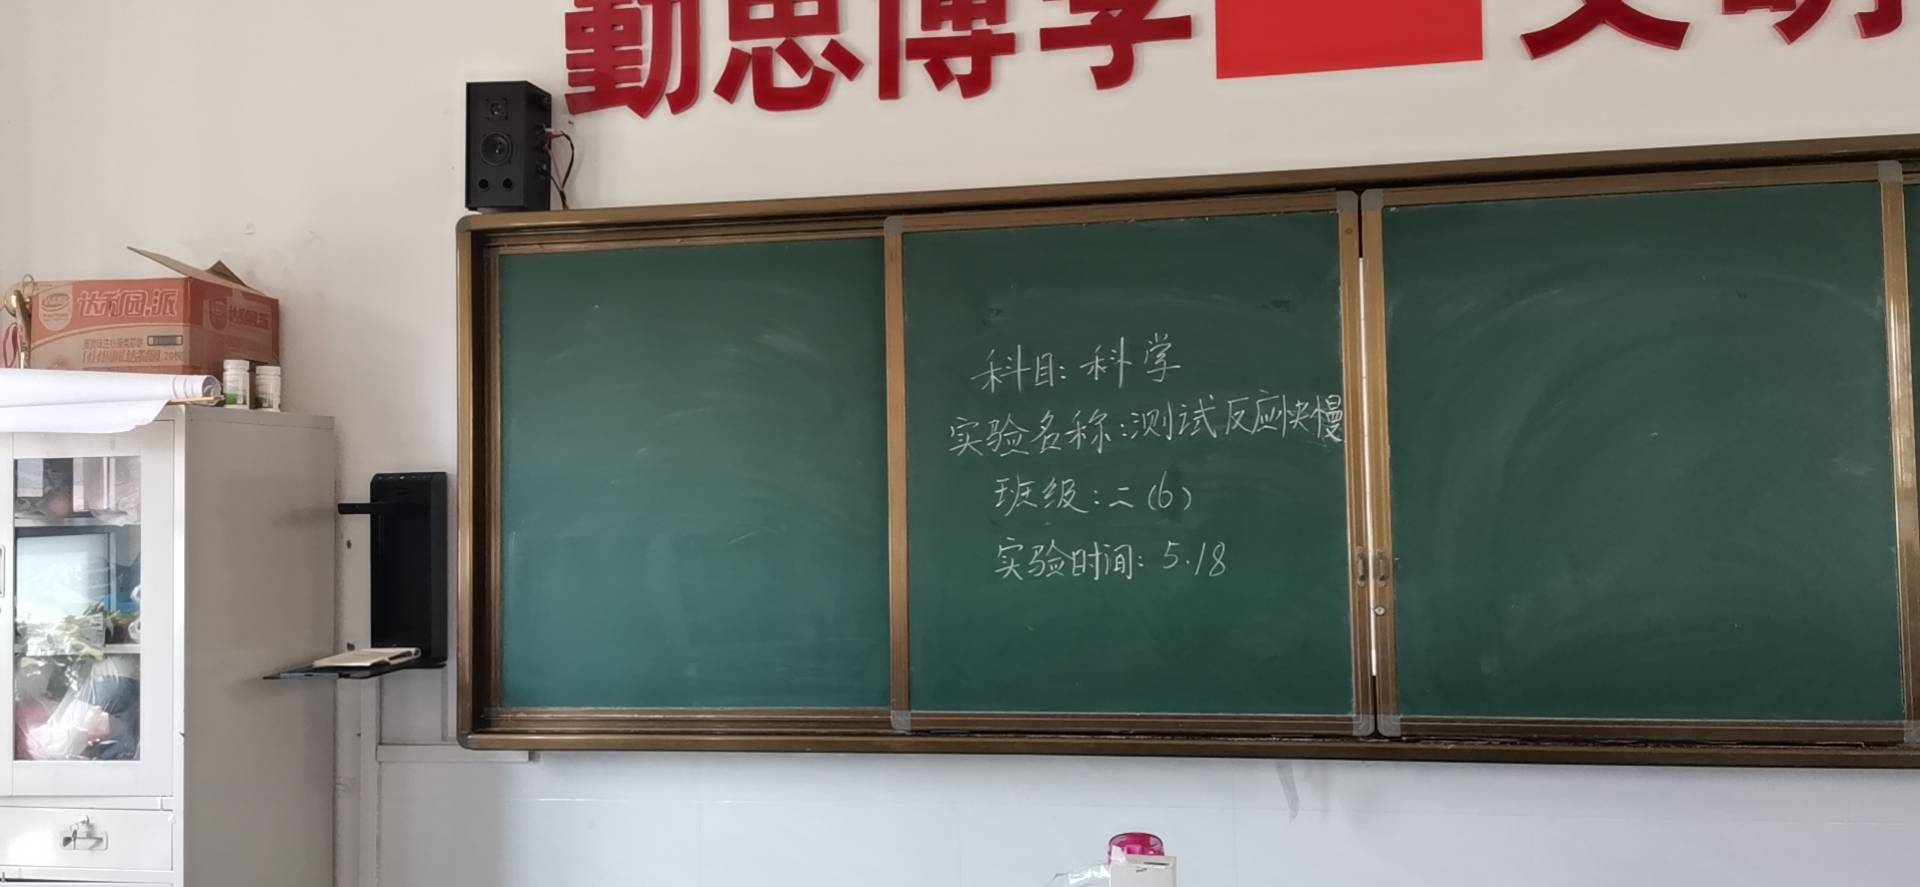 勤思博学 文明
达利园派
20枚
科目：科学
实验名称：测试反应快慢
班级：二（6）
实验时间：5.18